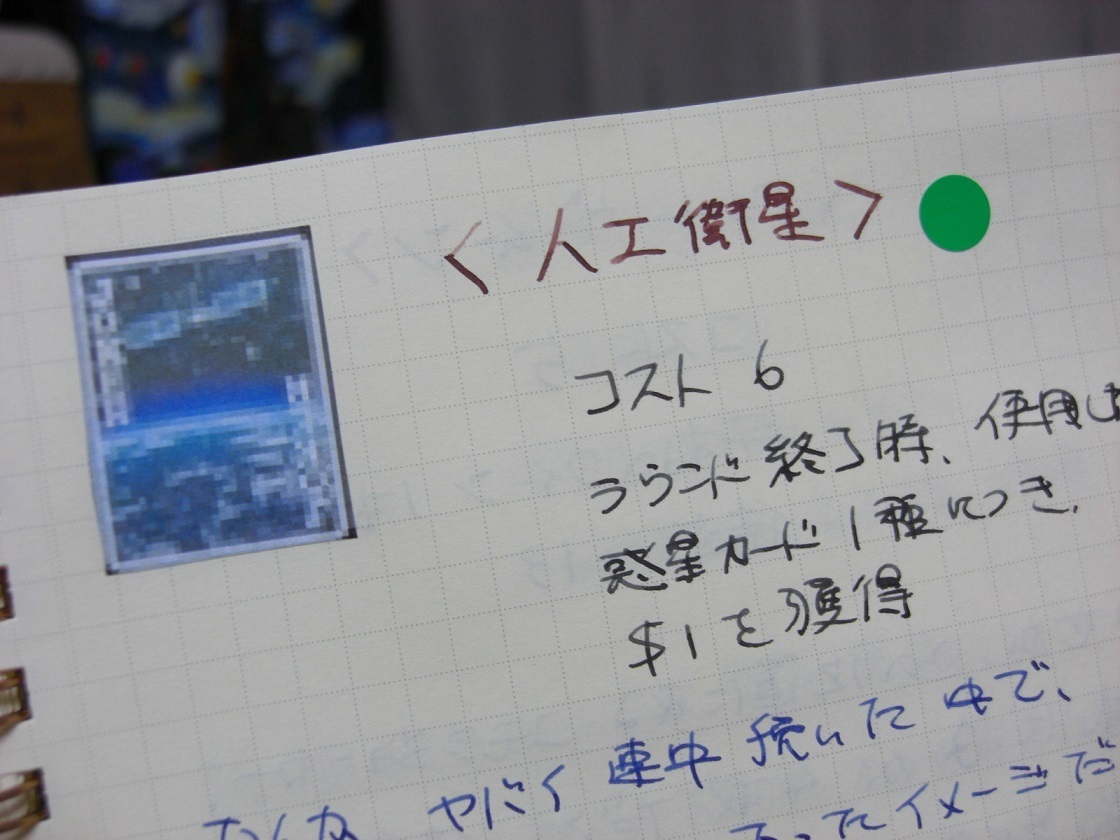 〈人工衛星〉
コスト 6
ラウンド終了時、使用
惑星カード1種につき、
$1を獲得
ヤバイ 連中 続いた 中で、
ったイメージだ